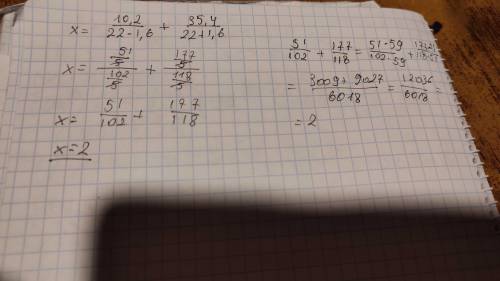 x = 10,2/(22-1,6) + 35,4/(22+1,6)
x = (51/5)/(102/5) + (177/5)/(118/5)
x = 51/102 + 177/118
x=2
51/102 + 177/118 = (51·59)/(102·59) +
= (3009+9027)/6018 = 12036/6018 =
= 2